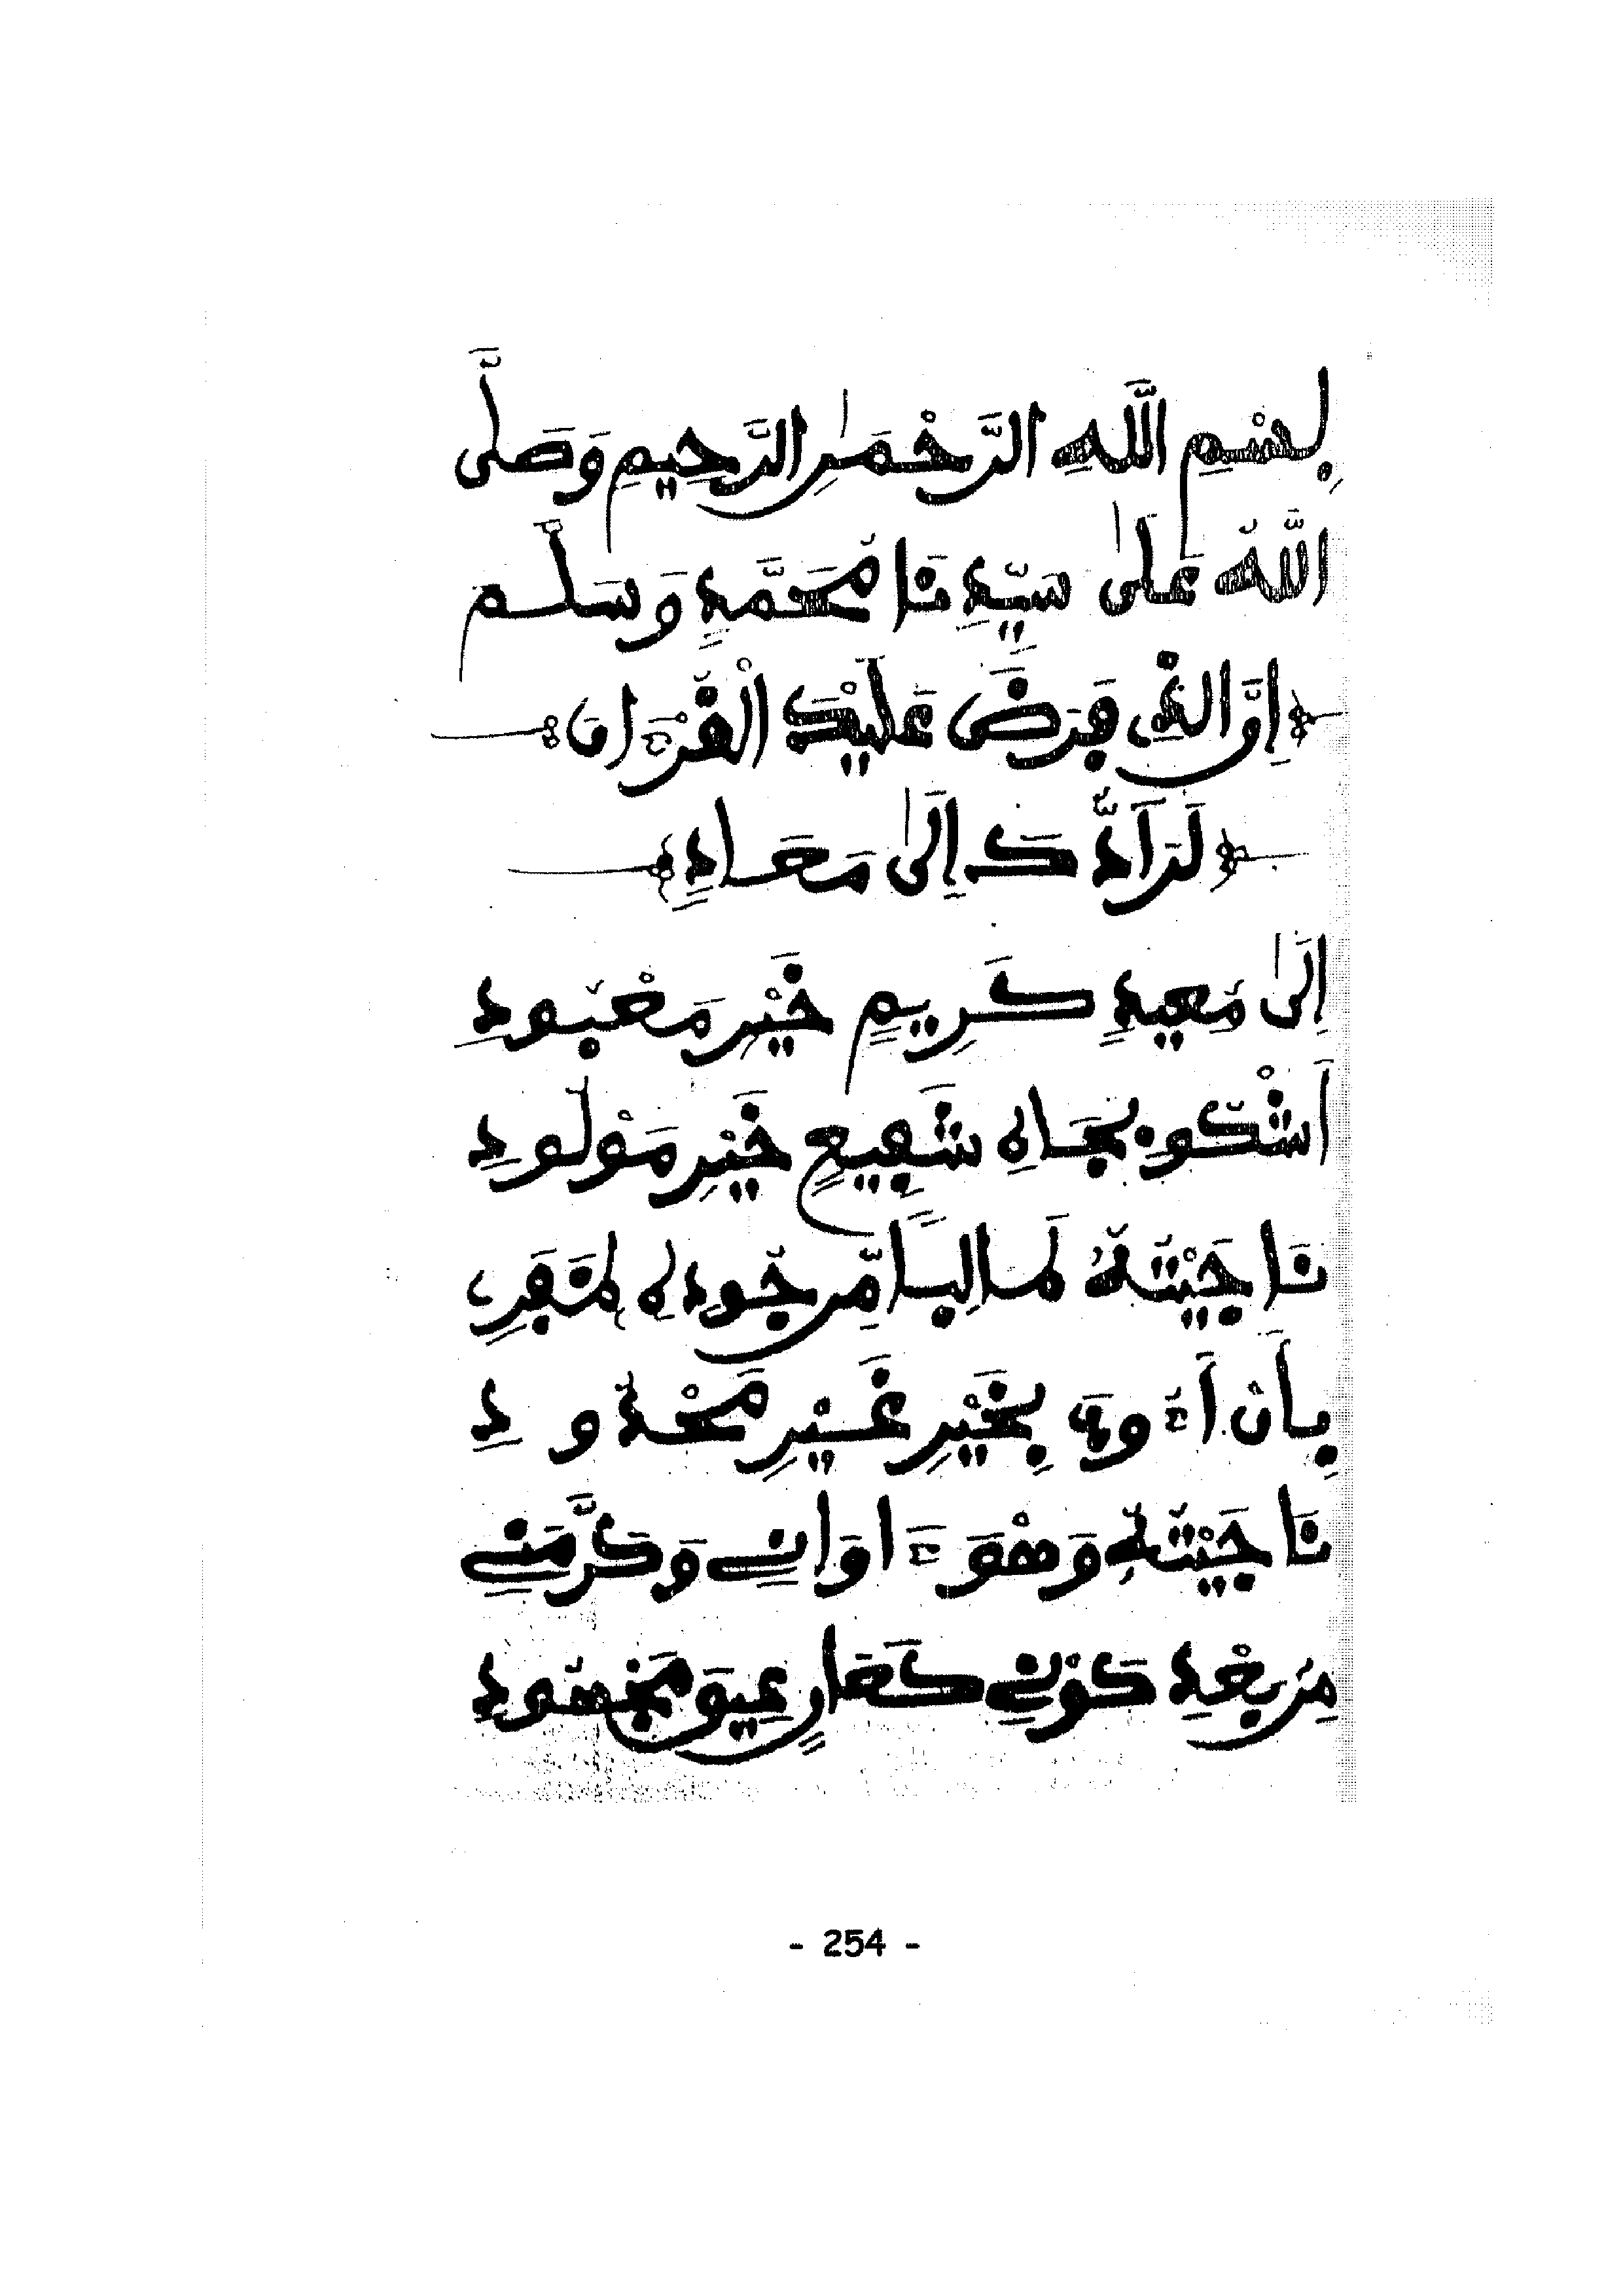 بِسْمِ اللَّهِ الرَّحْمَٰنِ الرَّحِيمِ وَصَلَّى
اللَّهُ عَلَىٰ سَيِّدِنَا مُحَمَّدٍ وَسَلَّم
اِنَّ الذِى فَرَضَ عَلَيْكَ الْقُرْءَانَ
لَرَآدُّكَ إِلَىٰ مَعَادٍ
اِلَىٰ مُعِيدٍ كَرِيمٍ خَيْرِ مَعْبُودِ
اَشْكُو بِجَاهِ شَفِيعٍ خَيْرِ مَوْلُودِ
نَاجَيْتُهُ طَالِبًا مِّن جُودِهِ
بِأَنْ اَءُوبَ بِخَيْرٍ غَيْرِ مَحْدُودِ
نَاجَيْتُهُ وَهْوَ ءَاوَانِي وَكَرَّمَنِي
مِن بَعْدِ كَوْنِي كَعَارٍ مَجْهُودِ
- 254 -